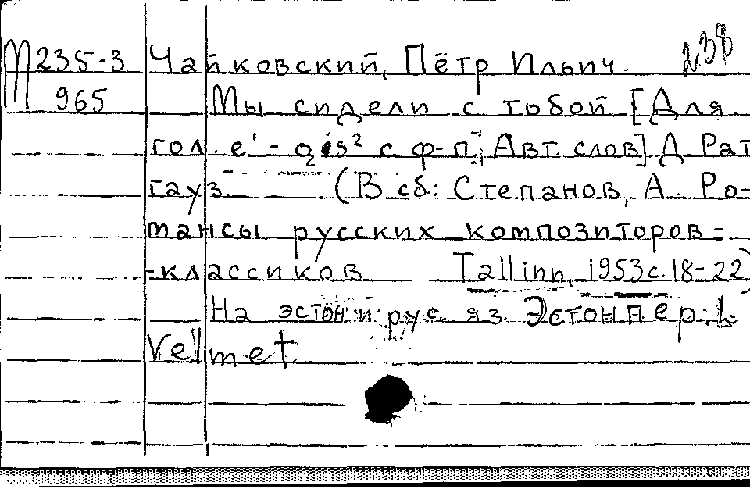 М 235-3 Чайковский, Пётр Ильич 238
965 Мы сидели с тобой [Для
гол. e' - gis² с ф-п; Авт. слов] Д. Рат
гауз (В сб: Степанов, А. Ро-
мансы русских композиторов-
-классиков Tallinn, 1953 с. 18-22)
На эстон и рус. яз. Эстон пер. L.
Velmet